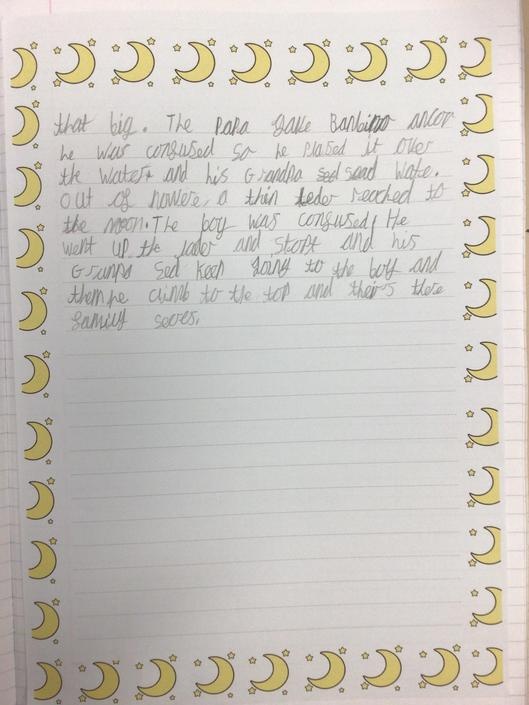 that big. The Papa gave Banbino ancor
he was confused so he plased it over
the water and his Grandpa sed said wate.
Out of nowere, a thin leder reached to
the moon. The boy was confused! He
went up the lader and stopt and his
Granpa sed keep going to the boy and
them he climb to the top and their's there
family secres.